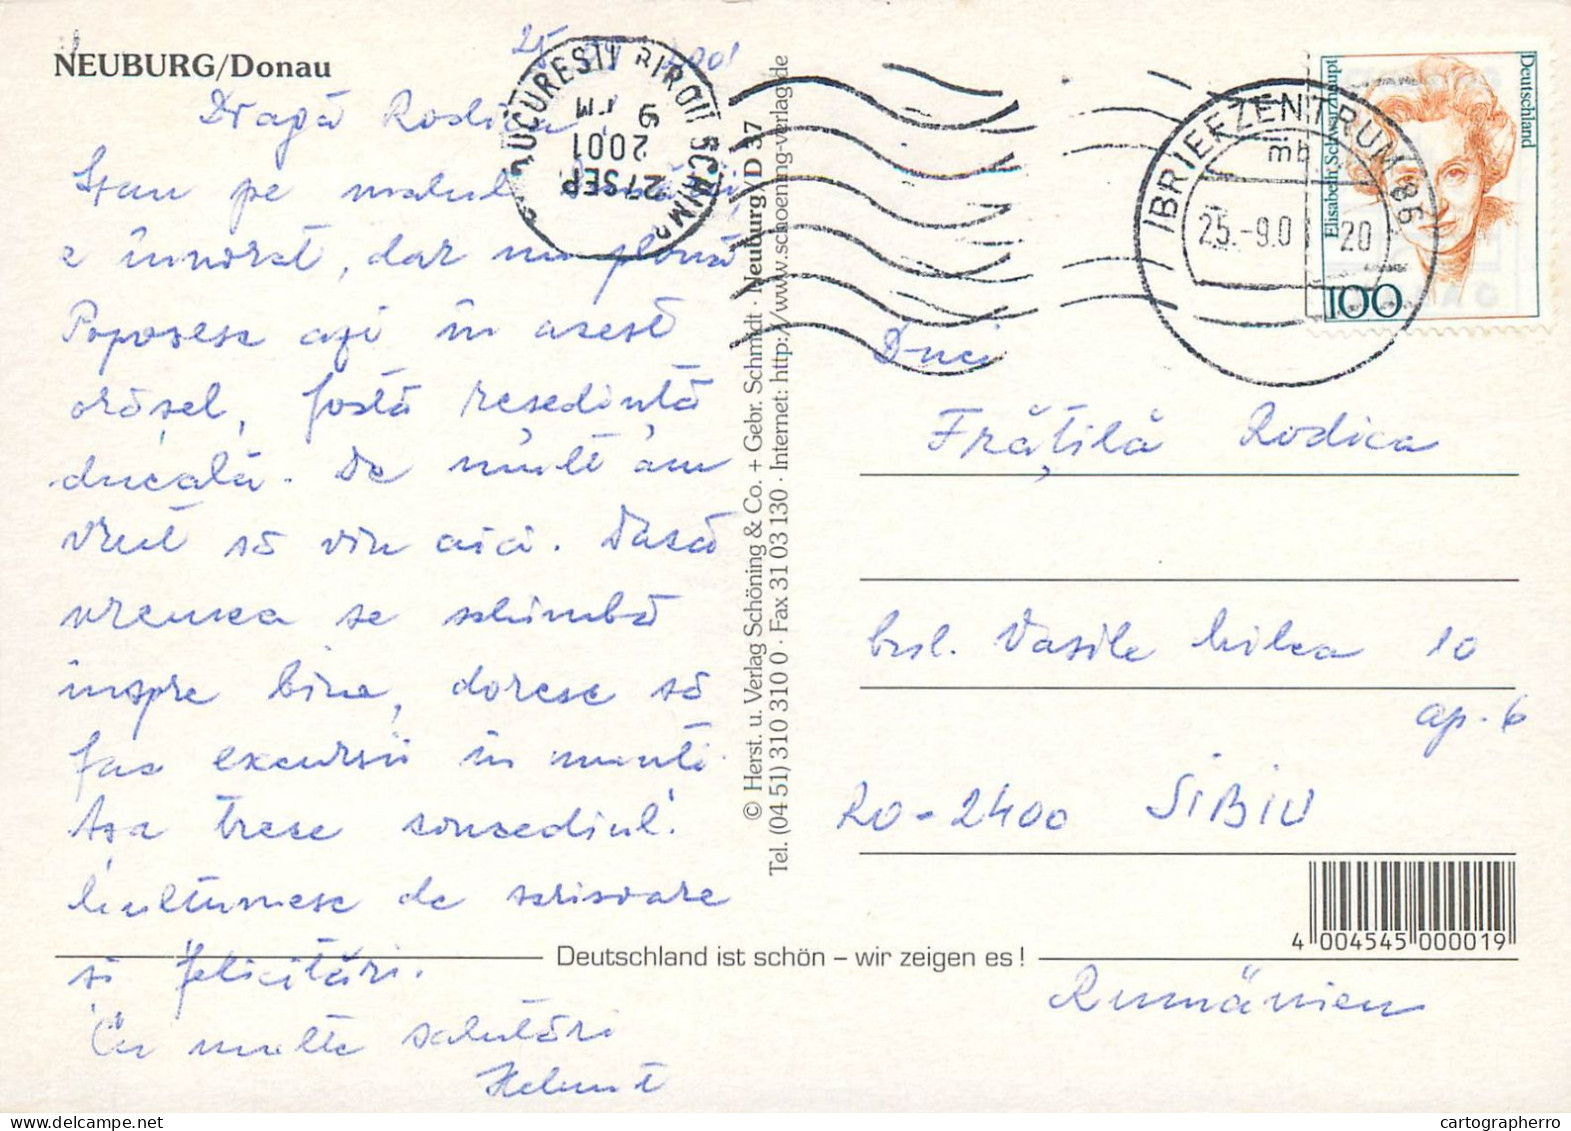 NEUBURG/Donau
Dragă Rodica,
Stau pe malul Dunării,
e înnorat, dar nu plouă
Poposesc azi în acest
orășel, fostă reședință
ducală. De mult am
vrut să vin aici. Dacă
vremea se schimbă
înspre bine, doresc să
fac excursii în munți.
Așa trece concediul!
Mulțumesc de scrisoare
si felicitări.
Cu multe salutări
Helmut
© Herst. u. Verlag Schöning & Co. + Gebr. Schmidt · Neuburg / D 37
Tel. (04 51) 310 310 0 · Fax 31 03 130 · Internet: http://www.schoening-verlag.de
2001
27 SEP
BRIEFZENTRUM 86
mb
25.-9.0 20
Deutschland
Elisabeth Schwarzhaupt
100
Frățilă Rodica
Vasile Milea 10
ap. 6
RO-2400 SIBIU
4 004545 000019
Deutschland ist schön – wir zeigen es !
Rumänien
cartographerro